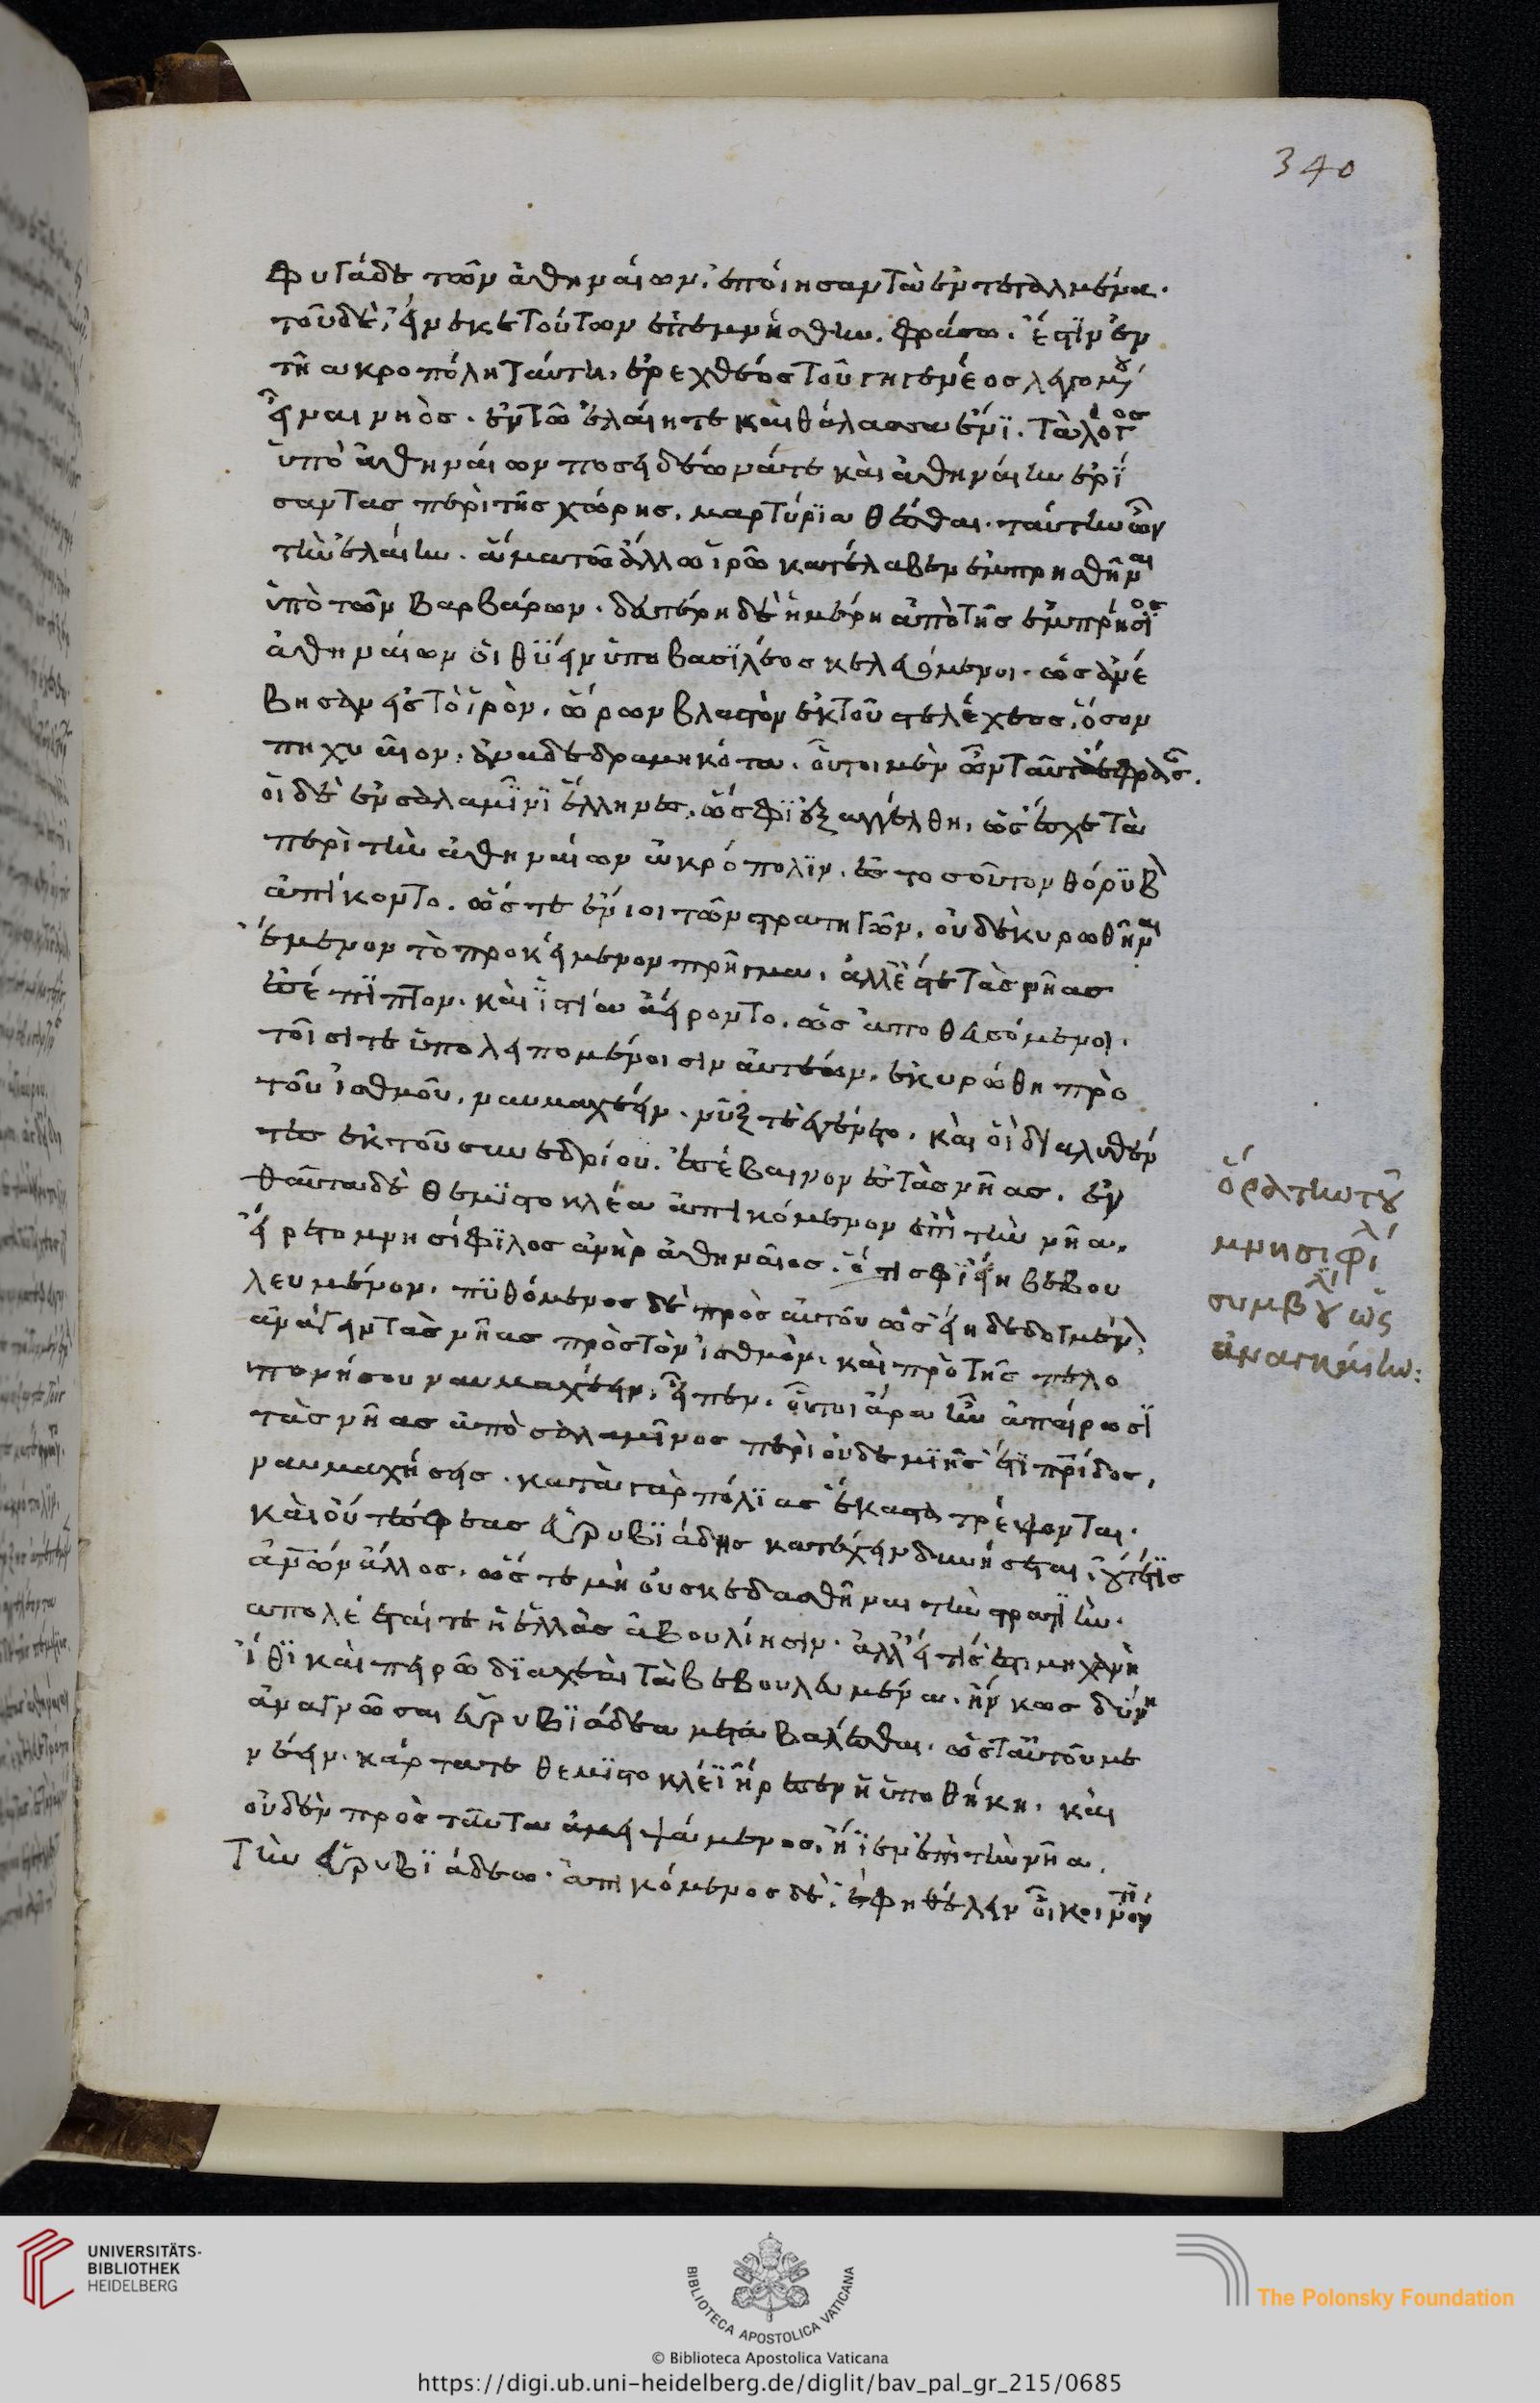 340
φυγάδε τῶν ἀθηναίων, ἐποίησαν τὰ ἐντεταλμένα.
τοῦ δὲ, εἵνεκε τούτων ἐπεμνήσθην, φράσω. ἔστιν ἐν
τῇ ἀκροπόλη ταύτη, ἐρεχθέος τοῦ γηγενέος λεγομένου
εἶναι νηὸς. ἐν τῶ ἐλαίη τε καὶ θάλασσα ἔνι. τὰ λόγος
ὑπὸ ἀθηναίων ποσειδέωνά τε καὶ ἀθηναίην ἐρί
σαντας περὶ τῆς χώρης, μαρτύρια θέσθαι. ταύτην ὦν
τὴν ἐλαίην. ἅμα τῶ ἄλλω ἱρῶ κατέλαβεν ἐμπρησθῆναι
ὑπὸ τῶν βαρβάρων. δευτέρη δὲ ἡμέρη ἀπὸ τῆς ἐμπρήσιος
ἀθηναίων οἱ θύειν ὑπὸ βασιλέος κελευόμενοι. ὡς ἀνέ
βησαν ἐς τὸ ἱρὸν, ὥρων βλαστὸν ἐκ τοῦ στελέχεος, ὅσον
πηχυαῖον, ἀναδεδραμηκότα. οὗτοι μὲν ὦν ταῦτα ἔφρασαν.
οἱ δὲ ἐν σαλαμῖνι ἕλληνες, ὥς σφι ἐξαγγέλθη, ὡς ἔσχε τὰ
περὶ τὴν ἀθηναίων ἀκρόπολιν, ἐς τοσοῦτον θόρυβον
ἀπίκοντο, ὥστε ἔνιοι τῶν στρατηγῶν, οὐδὲ κυρωθῆναι
ἔμενον τὸ προκείμενον πρῆγμα, ἀλλ' ἔς τε τὰς νῆας
ἐσέπιπτον. καὶ ἱστία ἀείροντο, ὡς ἀποθευσόμενοι.
τοῖσί τε ὑπολειπομένοισιν αὐτέων, ἐκυρώθη πρὸ
τοῦ ἰσθμοῦ, ναυμαχέειν. νύξ τε ἐγένετο, καὶ οἱ διαλυθέν
τες ἐκ τοῦ συνεδρίου. ἐσέβαινον ἐς τὰς νῆας. ἐν
θαῦτα δὲ θεμιστοκλέα ἀπικόμενον ἐπὶ τὴν νῆα,
εἴρετο μνησίφιλος ἀνὴρ ἀθηναῖος. ὅ τι σφι εἴη βεβου
λευμένον. πυθόμενος δὲ πρὸς αὐτοῦ ὡς εἴη δεδογμένον,
ἀνάγειν τὰς νῆας πρὸς τὸν ἰσθμὸν, καὶ πρὸ τῆς πελο
πονήσου ναυμαχέειν, εἶπεν. οὗτοι ἄρα ἢν ἀπαίρωσι
τὰς νῆας ἀπὸ σαλαμῖνος περὶ οὐδεμιῆς ἔτι πατρίδος,
ναυμαχήσεις. κατὰ γὰρ πόλιας ἕκαστοι τρέψονται.
καὶ οὔτε σφεας εὐρυβιάδης κατέχειν δυνήσεται, οὔτέ τις
ἀνθρώπων ἄλλος. ὥστε μὴ οὐ σκεδασθῆναι τὴν στρατιὴν.
ἀπολέεταί τε ἡ ἑλλὰς ἀβουλίησιν. ἀλλ' εἴ τίς ἐστι μηχανὴ
ἴθι καὶ πειρῶ διαχέαι τὰ βεβουλευμένα. ἤν κως δύνῃ
ἀναγνῶσαι εὐρυβιάδεα μεταβαλέσθαι. ὥστε αὐτοῦ με
νέειν. κάρτα τε θεμιστοκλέϊ ἤρεσεν ἡ ὑποθήκη. καὶ
οὐδὲν πρὸς ταῦτα ἀμειψάμενος, ἤϊεν ἐπὶ τὴν νῆα,
τὴν εὐρυβιάδεω. ἀπικόμενος δὲ, ἔφη θέλειν οἷ κοινόν τι
ὅρα τὴν τοῦ
μνησιφίλου
συμβουλὴν ὡς
ἀναγκαίην:
UNIVERSITÄTS-
BIBLIOTHEK
HEIDELBERG
BIBLIOTECA APOSTOLICA VATICANA
The Polonsky Foundation
© Biblioteca Apostolica Vaticana
https://digi.ub.uni-heidelberg.de/diglit/bav_pal_gr_215/0685